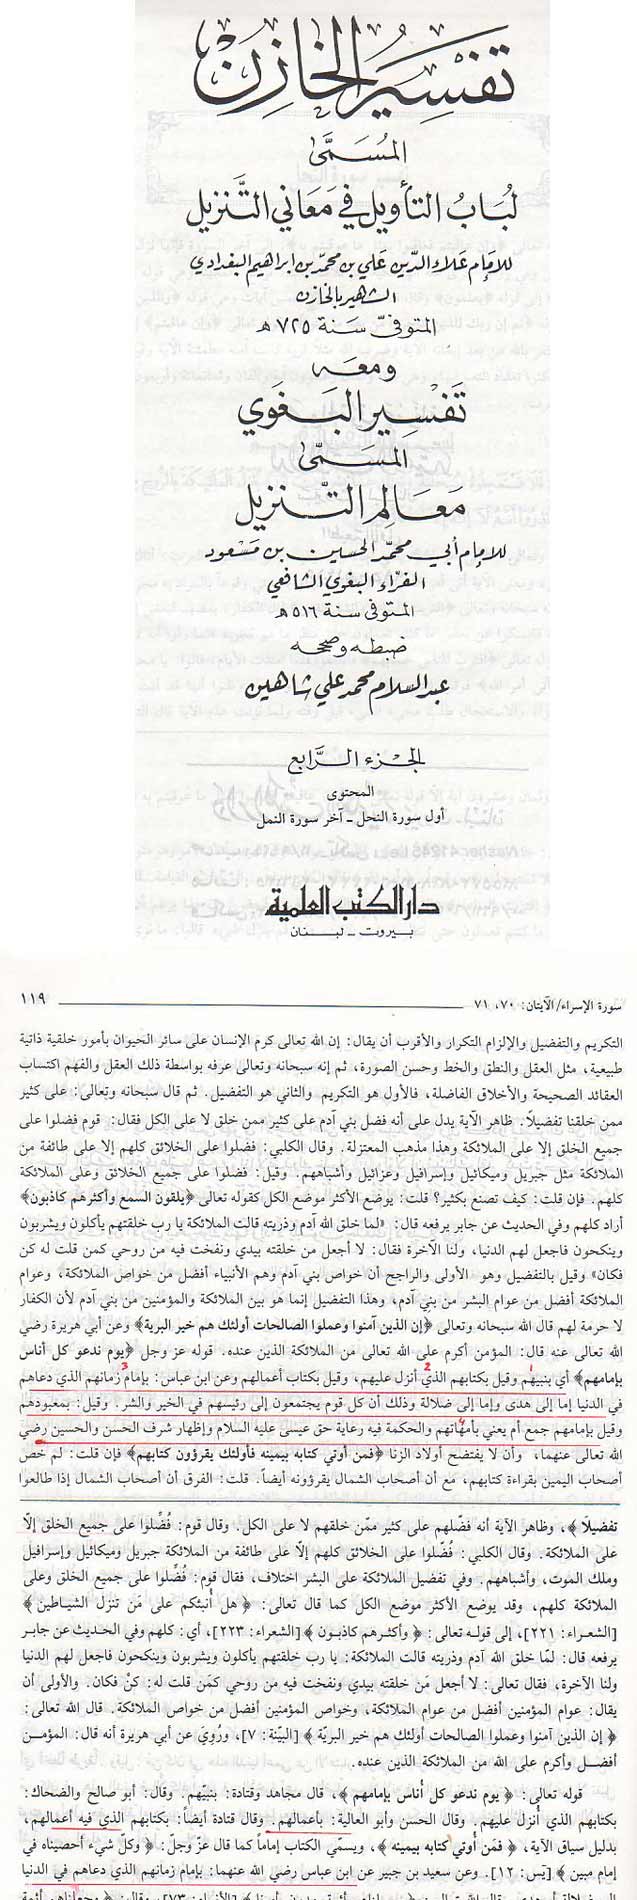 تفسير الخازن
المسمى
لباب التأويل في معاني التنزيل
للإمام علاء الدين علي بن محمد بن ابراهيم البغدادي
الشهير بالخازن
المتوفى سنة ٧٢٥ هـ
ومعه
تفسير البغوي
المسمى
معالم التنزيل
للإمام أبي محمد الحسين بن مسعود
الفراء البغوي الشافعي
المتوفى سنة ٥١٦ هـ
ضبطه وصححه
عبد السلام محمد علي شاهين
الجزء الرابع
المحتوى
أول سورة النحل - آخر سورة النمل
دار الكتب العلمية
بيروت - لبنان
سورة الإسراء/ الآيتان: ٧٠، ٧١ ١١٩
التكريم والتفضيل والإلزام التكرار والأقرب أن يقال: إن الله تعالى كرم الإنسان على سائر الحيوان بأمور خلقية ذاتية
طبيعية، مثل العقل والنطق والخط وحسن الصورة، ثم إنه سبحانه وتعالى عرفه بواسطة ذلك العقل والفهم اكتساب
العقائد الصحيحة والأخلاق الفاضلة، فالأول هو التكريم والثاني هو التفضيل. ثم قال سبحانه وتعالى: على كثير
ممن خلقنا تفضيلاً. ظاهر الآية يدل على أنه فضل بني آدم على كثير ممن خلق لا على الكل فقال: قوم فضلوا على
جميع الخلق إلا على الملائكة وهذا مذهب المعتزلة. وقال الكلبي: فضلوا على الخلائق كلهم إلا على طائفة من
الملائكة مثل جبريل وميكائيل وإسرافيل وعزائيل وأشباههم. وقيل: فضلوا على جميع الخلائق وعلى الملائكة
كلهم. فإن قلت: كيف تصنع بكثير؟ قلت: يوضع الأكثر موضع الكل كقوله تعالى ﴿يلقون السمع وأكثرهم كاذبون﴾
أراد كلهم وفي الحديث عن جابر يرفعه قال: «لما خلق الله آدم وذريته قالت الملائكة يا رب خلقتهم يأكلون ويشربون
وينكحون فاجعل لهم الدنيا، ولنا الآخرة فقال: لا أجعل من خلقته بيدي ونفخت فيه من روحي كمن قلت له كن
فكان» وقيل بالتفضيل وهو الأولى والراجح أن خواص بني آدم وهم الأنبياء أفضل من خواص الملائكة، وعوام
الملائكة أفضل من عوام البشر من بني آدم، وهذا التفضيل إنما هو بين الملائكة والمؤمنين من بني آدم لأن الكفار
لا حرمة لهم قال الله سبحانه وتعالى ﴿إن الذين آمنوا وعملوا الصالحات أولئك هم خير البرية﴾ وعن أبي هريرة رضي
الله تعالى عنه قال: المؤمن أكرم على الله تعالى من الملائكة الذين عنده. قوله عز وجل ﴿يوم ندعو كل أناس
بإمامهم﴾ أي بنبيهم وقيل بكتابهم الذي أنزل عليهم، وقيل بكتاب أعمالهم وعن ابن عباس: بإمام زمانهم الذي دعاهم
في الدنيا إما إلى هدى وإما إلى ضلالة وذلك أن كل قوم يجتمعون إلى رئيسهم في الخير والشر. وقيل: بمعبودهم
وقيل بإمامهم جمع أم يعني بأمهاتهم والحكمة فيه رعاية حق عيسى عليه السلام وإظهار شرف الحسن والحسين رضي
الله تعالى عنهما، وأن لا يفتضح أولاد الزنا ﴿فمن أوتي كتابه بيمينه فأولئك يقرؤون كتابهم﴾ فإن قلت: لم خص
أصحاب اليمين بقراءة كتابهم، مع أن أصحاب الشمال يقرؤونه أيضاً. قلت: الفرق أن أصحاب الشمال إذا طالعوا
تفضيلاً﴾، وظاهر الآية أنه فضّلهم على كثير ممّن خلقهم لا على الكل. وقال قوم: فُضِّلوا على جميع الخلق إلّا
على الملائكة. وقال الكلبي: فُضّلوا على الخلائق كلهم إلّا على طائفة من الملائكة جبريل وميكائيل وإسرافيل
وملك الموت، وأشباههم. وفي تفضيل الملائكة على البشر اختلاف، فقال قوم: فُضِّلوا على جميع الخلق وعلى
الملائكة كلهم، وقد يوضع الأكثر موضع الكل كما قال تعالى: ﴿هل أنبئكم على مَن تنزل الشياطين﴾
[الشعراء: ٢٢١]، إلى قوله تعالى: ﴿وأكثرهم كاذبون﴾ [الشعراء: ٢٢٣]، أي: كلهم وفي الحديث عن جابر
يرفعه قال: لمّا خلق الله آدم وذريته قالت الملائكة: يا رب خلقتهم يأكلون ويشربون وينكحون فاجعل لهم الدنيا
ولنا الآخرة، فقال تعالى: لا أجعل مَن خلقته بيدي ونفخت فيه من روحي كمَن قلت له: كنْ فكان. والأولى أن
يقال: عوام المؤمنين أفضل من عوام الملائكة، وخواص المؤمنين أفضل من خواص الملائكة. قال الله تعالى:
﴿إن الذين آمنوا وعملوا الصالحات أولئك هم خير البريّة﴾ [البيّنة: ٧]، ورُوِيَ عن أبي هريرة أنه قال: المؤمن
أفضل وأكرم على الله من الملائكة الذين عنده.
قوله تعالى: ﴿يوم ندعو كل أُناس بإمامهم﴾، قال مجاهد وقتادة: بنبيّهم. وقال: أبو صالح والضحاك:
بكتابهم الذي أُنزل عليهم. وقال الحسن وأبو العالية: بأعمالهم. وقال قتادة أيضاً: بكتابهم الذي فيه أعمالهم،
بدليل سياق الآية، ﴿فمَن أُوتي كتابه بيمينه﴾، ويسمّى الكتاب إماماً كما قال عزّ وجلّ: ﴿وكلّ شيء أحصيناه في
إمام مبين﴾ [يَس: ١٢]. وعن سعيد بن جبير عن ابن عباس رضي الله عنهما: بإمام زمانهم الذي دعاهم في الدنيا